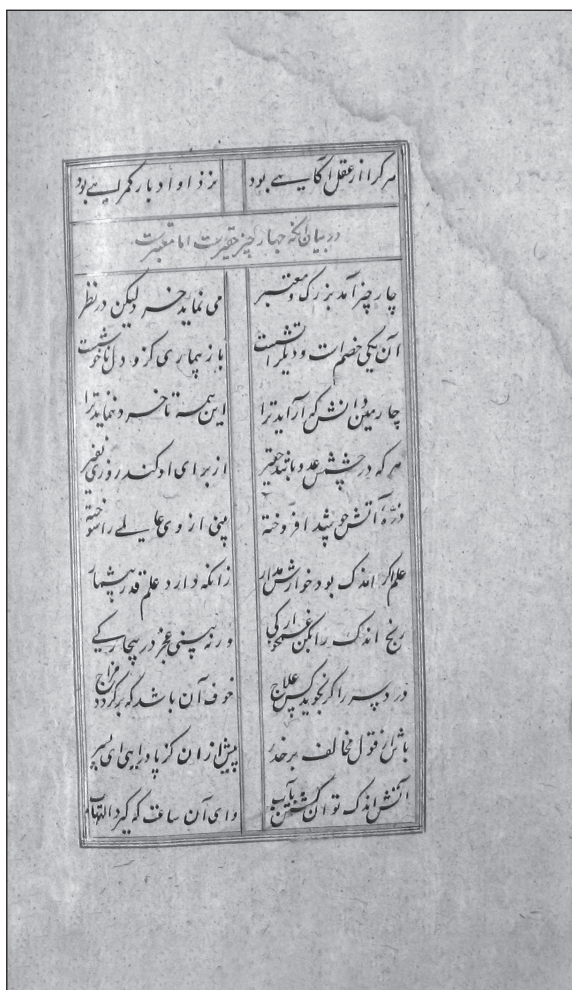 هر کرا از عقل آگاهی بود نزد او ادبار گمراهی بود
در بیان آنکه چهار چیز حقیرست اما معتبرست
چار چیز آمد بزرگ و معتبر می نماید خرد لیکن در نظر
آن یکی خصم است و دیگر آتشست باز بیماری کزو دل ناخوشست
چارمین دانش که آراید ترا این همه تا خرد ننماید ترا
هر که در چشمش عدو باشد حقیر از برای او کند روزی نفیر
ذره آتش چو شد افروخته بینی از وی عالمی را سوخته
علم اگر اندک بود خوارش مدار زانکه دارد علم قدر بیشمار
رنج اندک را بکن غمخوارگی ورنه بینی عجز در بیچارگی
درد سر را گر نجوید کس علاج خوف آن باشد که برگردد مزاج
باش از قول مخالف بر حذر پیش از ان کز پا درایی ای پسر
آتش اندک توان کشتن بآب وای آن ساعت که گیرد التهاب